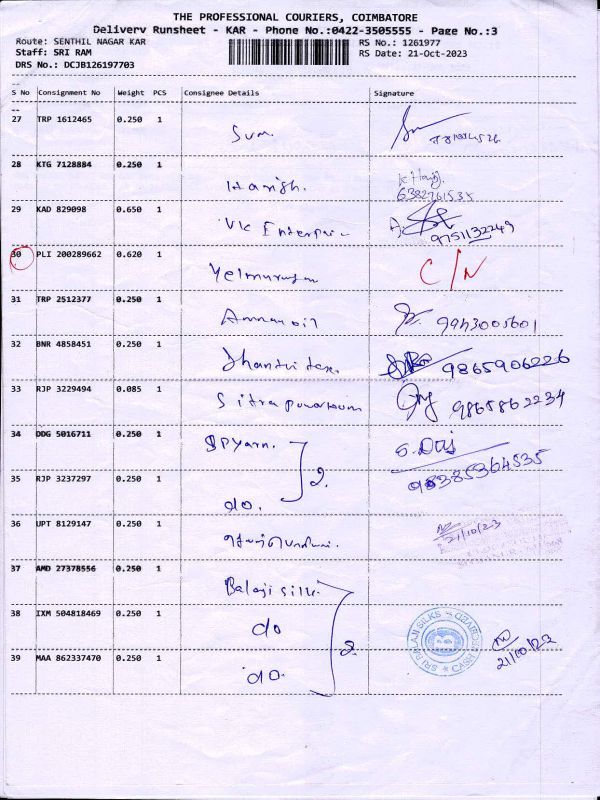 THE PROFESSIONAL COURIERS, COIMBATORE
Delivery Runsheet - KAR - Phone No.:0422-3505555 - Page No.:3
Route: SENTHIL NAGAR KAR
RS No.: 1261977
Staff: SRI RAM
RS Date: 21-Oct-2023
DRS No.: DCJB126197703
S No Consignment No Weight PCS Consignee Details Signature
27 TRP 1612465 0.250 1
28 KTG 7128884 0.250 1 Harish.
6382761535
29 KAD 829098 0.650 1
9751132249
30 PLI 200289662 0.620 1 Velmurugan C/N
31 TRP 2512377 0.250 1 Amman oil 9943005601
32 BNR 4858451 0.250 1 9865906226
33 RJP 3229494 0.085 1 9865862234
34 DDG 5016711 0.250 1 SPYarn. 2. S. Das
35 RJP 3237297 0.250 1 do.
36 UPT 8129147 0.250 1 21/10/23
37 AMD 27378556 0.250 1 Balaji silk.
38 IXM 504818469 0.250 1 do 2. SRI BALAJI SILKS CASH
39 MAA 862337470 0.250 1 do. 21/10/23